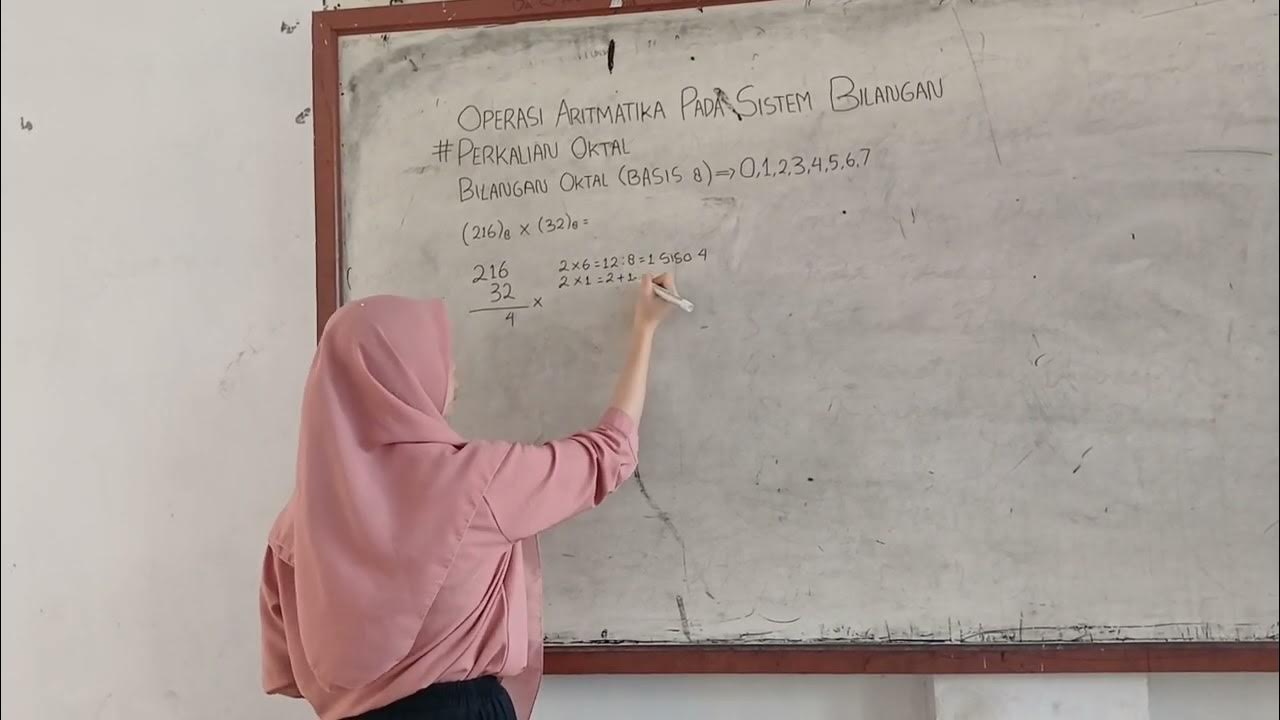 OPERASI ARITMATIKA PADA SISTEM BILANGAN
# PERKALIAN OKTAL
BILANGAN OKTAL (BASIS 8) ⇒ 0,1,2,3,4,5,6,7
(216)₈ × (32)₈ =
216
32 ×
4
2 × 6 = 12 : 8 = 1 SISA 4
2 × 1 = 2 + 1